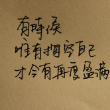 有时候
唯有拥写自己
才会有再度盈满